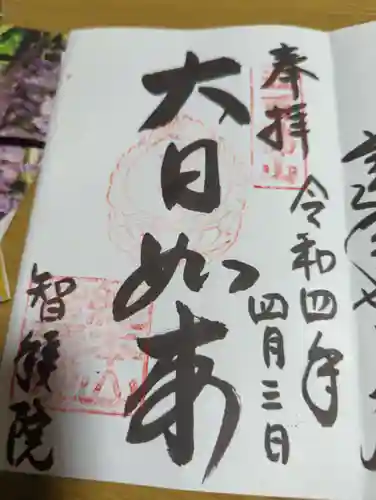 奉拝
令和四年
四月三日
大日如来
智積院